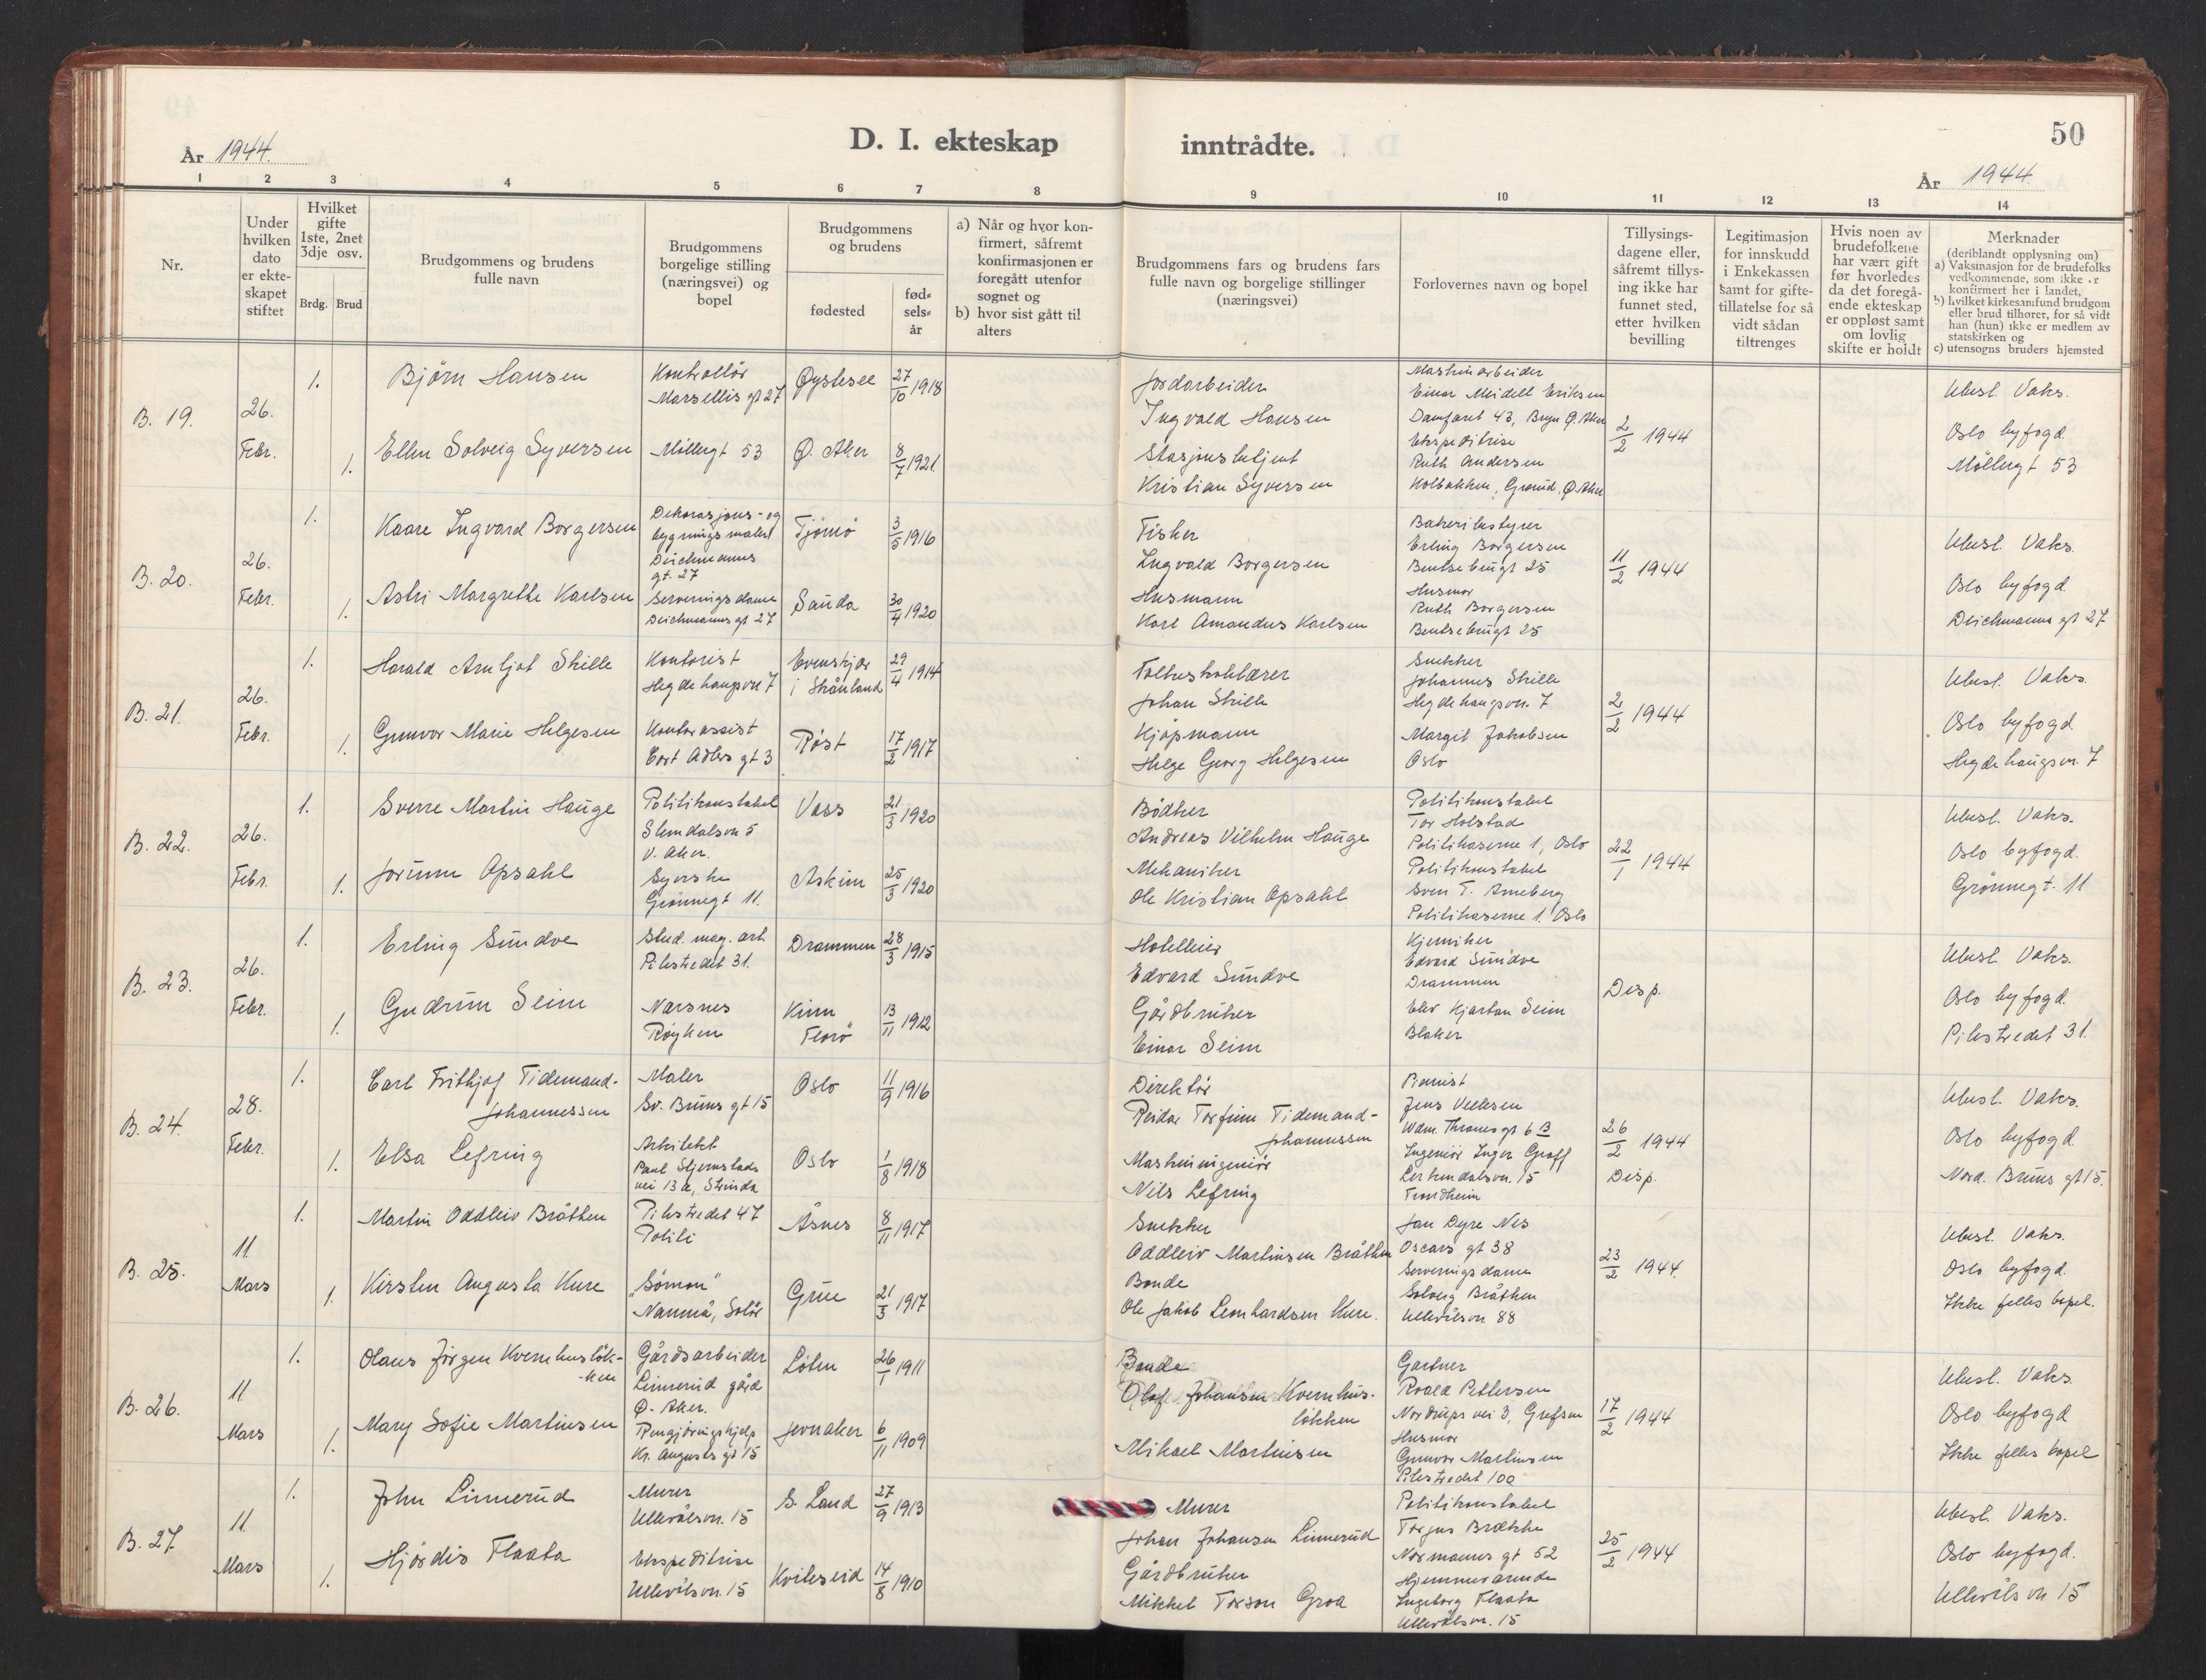 D. I. ekteskap inntrådte.
50
År 1944.
År 1944.
1 2 3 4 5 6 7 8 9 10 11 12 13 14
Nr.
Under hvilken dato er ekteskapet stiftet
Hvilket gifte 1ste, 2net 3dje osv.
Brdg. Brud
Brudgommens og brudens fulle navn
Brudgommens borgelige stilling (næringsvei) og bopel
Brudgommens og brudens
fødested
fødselsår
a) Når og hvor konfirmert, såfremt konfirmasjonen er foregått utenfor sognet og
b) hvor sist gått til alters
Brudgommens fars og brudens fars fulle navn og borgelige stillinger (næringsvei)
Forlovernes navn og bopel
Tillysingsdagene eller, såfremt tillysing ikke har funnet sted, etter hvilken bevilling
Legitimasjon for innskudd i Enkekassen samt for giftetillatelse for så vidt sådan tiltrenges
Hvis noen av brudefolkene har vært gift før hvorledes da det foregående ekteskap er oppløst samt om lovlig skifte er holdt
Merknader
(deriblandt opplysning om)
a) Vaksinasjon for de brudefolks vedkommende, som ikke er konfirmert her i landet,
b) hvilket kirkesamfund brudgom eller brud tilhører, for så vidt han (hun) ikke er medlem av statskirken og
c) utensogns bruders hjemsted
B. 19.
26. Febr.
1.
Bjørn Hansen
Kontrollør
Marsellis gt 27
Øystese
27/10 1918
1.
Ellen Solveig Syversen
Møllergt 53
Ø. Aker
8/7 1921
Jordarbeider
Ingvald Hansen
Stasjonsbetjent
Kristian Syversen
Maskinarbeider
Einar Meidell Eriksen
Damfaret 43, Bryn Ø. Aker
Ekspeditrise
Ruth Andersen
Kolbakken, Grorud, Ø. Aker
2/2 1944
Ubesl. Vaks.
Oslo byfogd.
Møllergt 53
B. 20.
26. Febr.
1.
Kaare Ingvard Borgersen
Dekorasjons- og
bygningsmaler
Deichmanns
gt. 27
Tjømø
3/5 1916
1.
Astri Margrethe Karlsen
Serveringsdame
Deichmanns gt 27
Sauda
30/4 1920
Fisker
Ingvald Borgersen
Husmann
Karl Amandus Karlsen
Bakeribestyrer
Erling Borgersen
Bentsebrugt 25
Husmor
Ruth Borgersen
Bentsebrugt 25
11/2 1944
Ubesl. Vaks.
Oslo byfogd.
Deichmanns gt 27
B. 21.
26. Febr.
1.
Harald Arnljot Skille
Kontorist
Hegdehaugsvn 7
Evenskjær
i Skånland
29/4 1914
1.
Gunvor Marie Helgesen
Kontorassist
Cort Adlers gt 3
Røst
17/2 1917
Folkeskolelærer
Johan Skille
Kjøpmann
Helge Georg Helgesen
Snekker
Johannes Skille
Hegdehaugsvn. 7
Margit Jakobsen
Oslo
2/2 1944
Ubesl. Vaks.
Oslo byfogd.
Hegdehaugsvn. 7
B. 22.
26. Febr.
1.
Sverre Martin Hauge
Politikonstabel
Slemdalsvn 5
V. Aker.
Voss
21/3 1920
1.
Jorunn Opsahl
Syerske
Grønnegt 11.
Askim
25/3 1920
Bødker
Andreas Vilhelm Hauge
Mekaniker
Ole Kristian Opsahl
Politikonstabel
Tor Holstad
Politikaserne 1, Oslo
Politikonstabel
Sven T. Arneberg
Politikaserne 1. Oslo
22/1 1944
Ubesl. Vaks.
Oslo byfogd.
Grønnegt. 11
B. 23.
26. Febr.
1.
Erling Sundve
Stud. mag. art
Pilestredet 31.
Drammen
28/3 1915
1.
Gudrun Seim
Nærsnes
Røyken
Kinn
Florø
13/11 1912
Hotelleier
Edvard Sundve
Gårdbruker
Einar Seim
Kjemiker
Edvard Sundve
Drammen
Elev Kjartan Seim
Blaker
Disp.
Ubesl. Vaks.
Oslo byfogd.
Pilestredet 31.
B. 24.
28. Febr.
1.
Carl Frithjof Tidemand-
Johannessen
Maler
No. Bruns gt 15
Oslo
11/9 1916
1.
Elsa Lefring
Arkitekt
Paul Stjernstads
vei 13a, Strinda
Oslo
1/8 1918
Direktør
Reidar Torfinn Tidemand-
Johannessen
Maskiningeniør
Nils Lefring
Pianist
Jens
Wdm. Thranes gt 6 B
Ingeniør Inger Graff
Lerkendalsvn. 15
Trondheim
26/2 1944
Disp.
Ubesl. Vaks.
Oslo byfogd.
Nord. Bruns gt 15.
B. 25.
11. Mars
1.
Martin Oddleiv Bråthen
Pilestredet 47
Politi
Åsnes
8/11 1917
1.
Kirsten Augusta Kure
"Sømon"
Namnå, Solør
Grue
21/3 1917
Snekker
Oddleiv Martinsen Bråthen
Bonde
Ole Jakob Leonhardsen Kure.
Jan Dyre Nes
Oscars gt 38
Serveringsdame
Solveig Bråthen
Ullevålsvn 88
23/2 1944.
Ubesl. Vaks.
Oslo byfogd.
Ikke felles bopel.
B. 26.
11. Mars
1.
Olaus Jörgen Kvernhusløk-
-ken
Gårdsarbeider
Linnerud gård
Ø. Aker.
Løten
26/1 1911
1.
Mary Sofie Martinsen
Rengjøringshjelp
Kr. Augusts gt 15
Jevnaker
6/11 1909
Bonde
Olaf Johansen Kvernhus-
løkken
Mikael Martinsen
Gartner
Roald Pettersen
Nordrups vei 3, Grefsen
Husmor
Gunvor Martinsen
Pilestredet 100
17/2 1944
Ubesl. Vaks.
Oslo byfogd
Ikke felles bopel
B. 27.
11. Mars
1.
John Linnerud
Murer
Ullevålsvn. 15
S. Land
27/9 1913
1.
Hjørdis Flaata
Ekspeditrise
Ullevålsvn. 15
Kviteseid
14/8 1910
Murer
Johan Johansen Linnerud
Gårdbruker
Mikkel Torson Groa
Politikonstabel
Torjus Brække
Normanns gt 52
Hjemmeværende
Ingeborg Flaata
Ullevålsvn. 15
25/2 1944
Ubesl. Vaks.
Oslo byfogd.
Ullevålsvn 15